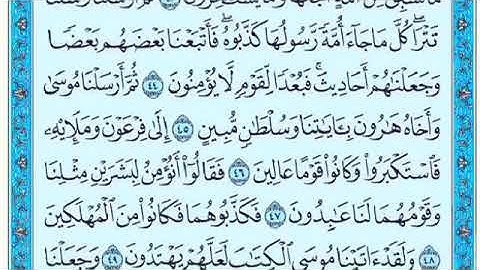 تَتْرَا ۖ كُلَّ مَا جَآءَ أُمَّةً رَّسُولُهَا كَذَّبُوهُ ۚ فَأَتْبَعْنَا بَعْضَهُم بَعْضًا
وَجَعَلْنَٰهُمْ أَحَادِيثَ ۚ فَبُعْدًا لِّقَوْمٍ لَّا يُؤْمِنُونَ ٤٤ ثُمَّ أَرْسَلْنَا مُوسَىٰ
وَأَخَاهُ هَٰرُونَ بِـَٔايَٰتِنَا وَسُلْطَٰنٍ مُّبِينٍ ٤٥ إِلَىٰ فِرْعَوْنَ وَمَلَإِي۟هِۦ
فَٱسْتَكْبَرُوا۟ وَكَانُوا۟ قَوْمًا عَالِينَ ٤٦ فَقَالُوٓا۟ أَنُؤْمِنُ لِبَشَرَيْنِ مِثْلِنَا
وَقَوْمُهُمَا لَنَا عَٰبِدُونَ ٤٧ فَكَذَّبُوهُمَا فَكَانُوا۟ مِنَ ٱلْمُهْلَكِينَ
٤٨ وَلَقَدْ ءَاتَيْنَا مُوسَى ٱلْكِتَٰبَ لَعَلَّهُمْ يَهْتَدُونَ ٤٩ وَجَعَلْنَا